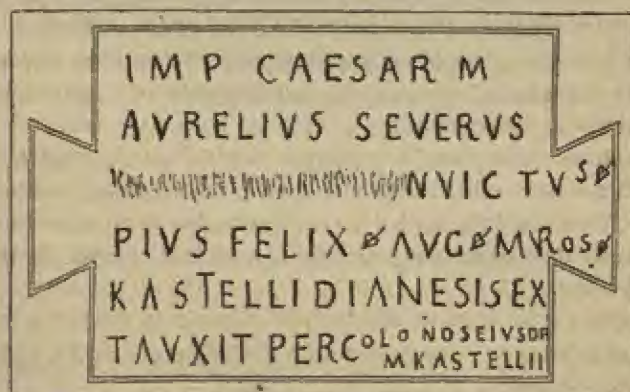 IMP CAESAR M
AVRELIVS SEVERVS
NVICTVS
PIVS FELIX AVG MVROS
KASTELLI DIANESIS EX
TAVXIT PER COLONOS EIVSDE
M KASTELLII